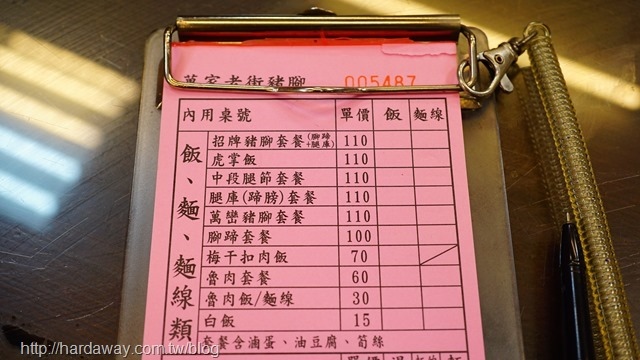 萬家老街豬腳 005487
內用桌號 單價 飯 麵線
飯、麵、麵線類
招牌豬腳套餐(腳蹄+腿庫) 110
虎掌飯 110
中段腿節套餐 110
腿庫(蹄膀)套餐 110
萬巒豬腳套餐 110
腳蹄套餐 100
梅干扣肉飯 70
魯肉套餐 60
魯肉飯/麵線 30
白飯 15
套餐含滷蛋、油豆腐、筍絲
http://hardaway.com.tw/blog